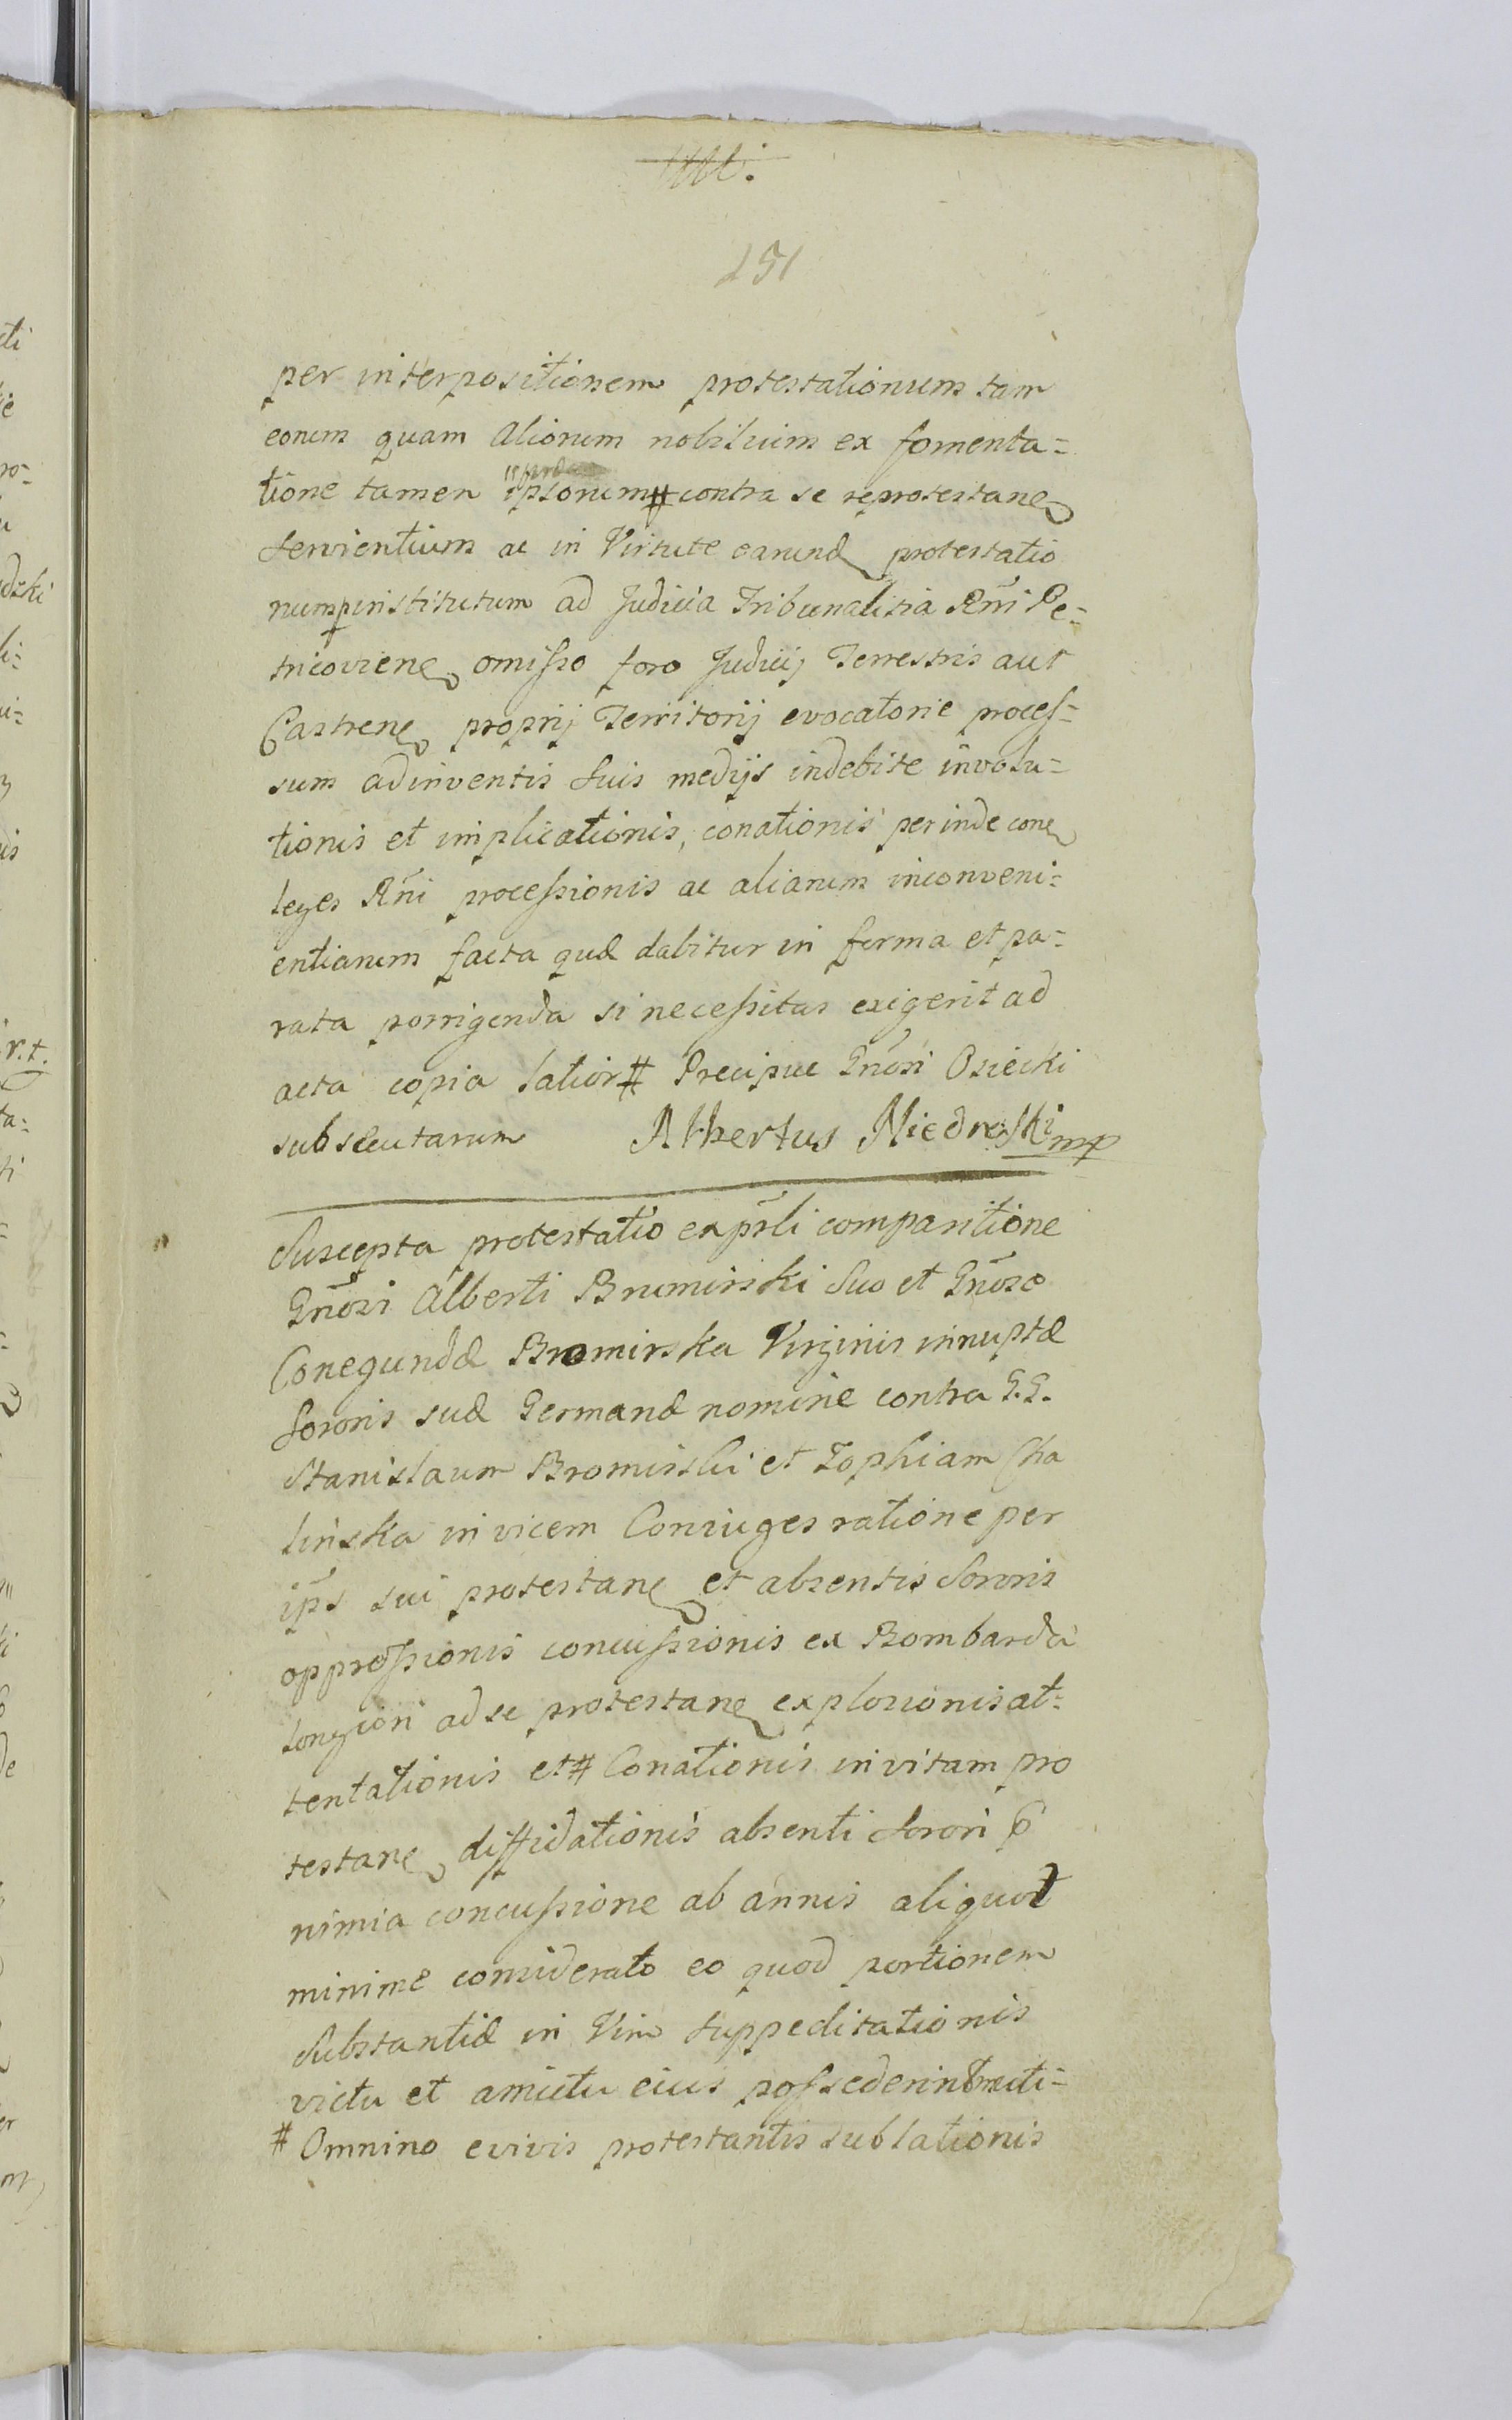 151
per interpositionem protestationum tam
eorum quam Aliorum nobilium ex fomenta=
tione tamen ipsorum # contra se reprotestane
servientium ac in Virtute earund protestatio
num institutum ad Judicia Tribunalitia Rñi Pe=
tricoviene omisso foro Judicij Terrestris aut
Castrene proprij Territorij evocatorie proces=
sum adinventis suis medijs indebite involu=
tionis et implicationis, conationis perinde cone
leges Rñi processionis ac aliarum inconveni=
entiarum facta quæ dabitur in forma et pa=
rata porrigenda si necessitas exigerit ad
acta copia latior # Precipue Gñosi Osiecki
subsecutarum Albertus Niedroski mp
Suscepta protestatio ex pñli comparitione
Gñosi Alberti Bromirski Suo et Gñosæ
Conegundæ Bromirska Virginis innuptæ
Sororis suæ Germanæ nomine contra G.G.
Stanislaum Bromirski et Zophiam Cha
linska invicem Coniuges ratione per
ips sui protestane et absentis Sororis
oppressionis concussionis ex Bombarda
longiori ad se protestane explosionis at=
tentationis et # Conationis in vitam pro
testane diffidationis absenti Sorori
nimia concussione ab annis aliquot
minime considerato eo quod portionem
Substantiæ in Vim suppeditationis
victu et amictu eius possederint
# Omnino e vivis protestantis sublationis